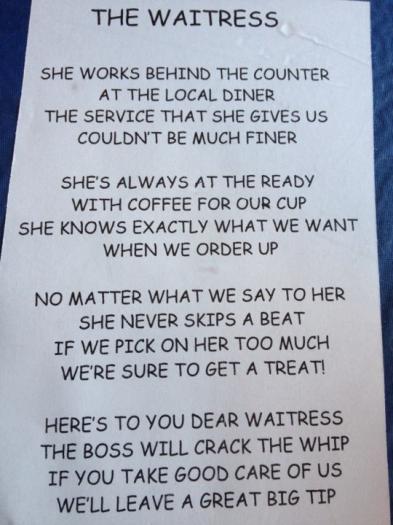 THE WAITRESS
SHE WORKS BEHIND THE COUNTER
AT THE LOCAL DINER
THE SERVICE THAT SHE GIVES US
COULDN'T BE MUCH FINER
SHE'S ALWAYS AT THE READY
WITH COFFEE FOR OUR CUP
SHE KNOWS EXACTLY WHAT WE WANT
WHEN WE ORDER UP
NO MATTER WHAT WE SAY TO HER
SHE NEVER SKIPS A BEAT
IF WE PICK ON HER TOO MUCH
WE'RE SURE TO GET A TREAT!
HERE'S TO YOU DEAR WAITRESS
THE BOSS WILL CRACK THE WHIP
IF YOU TAKE GOOD CARE OF US
WE'LL LEAVE A GREAT BIG TIP